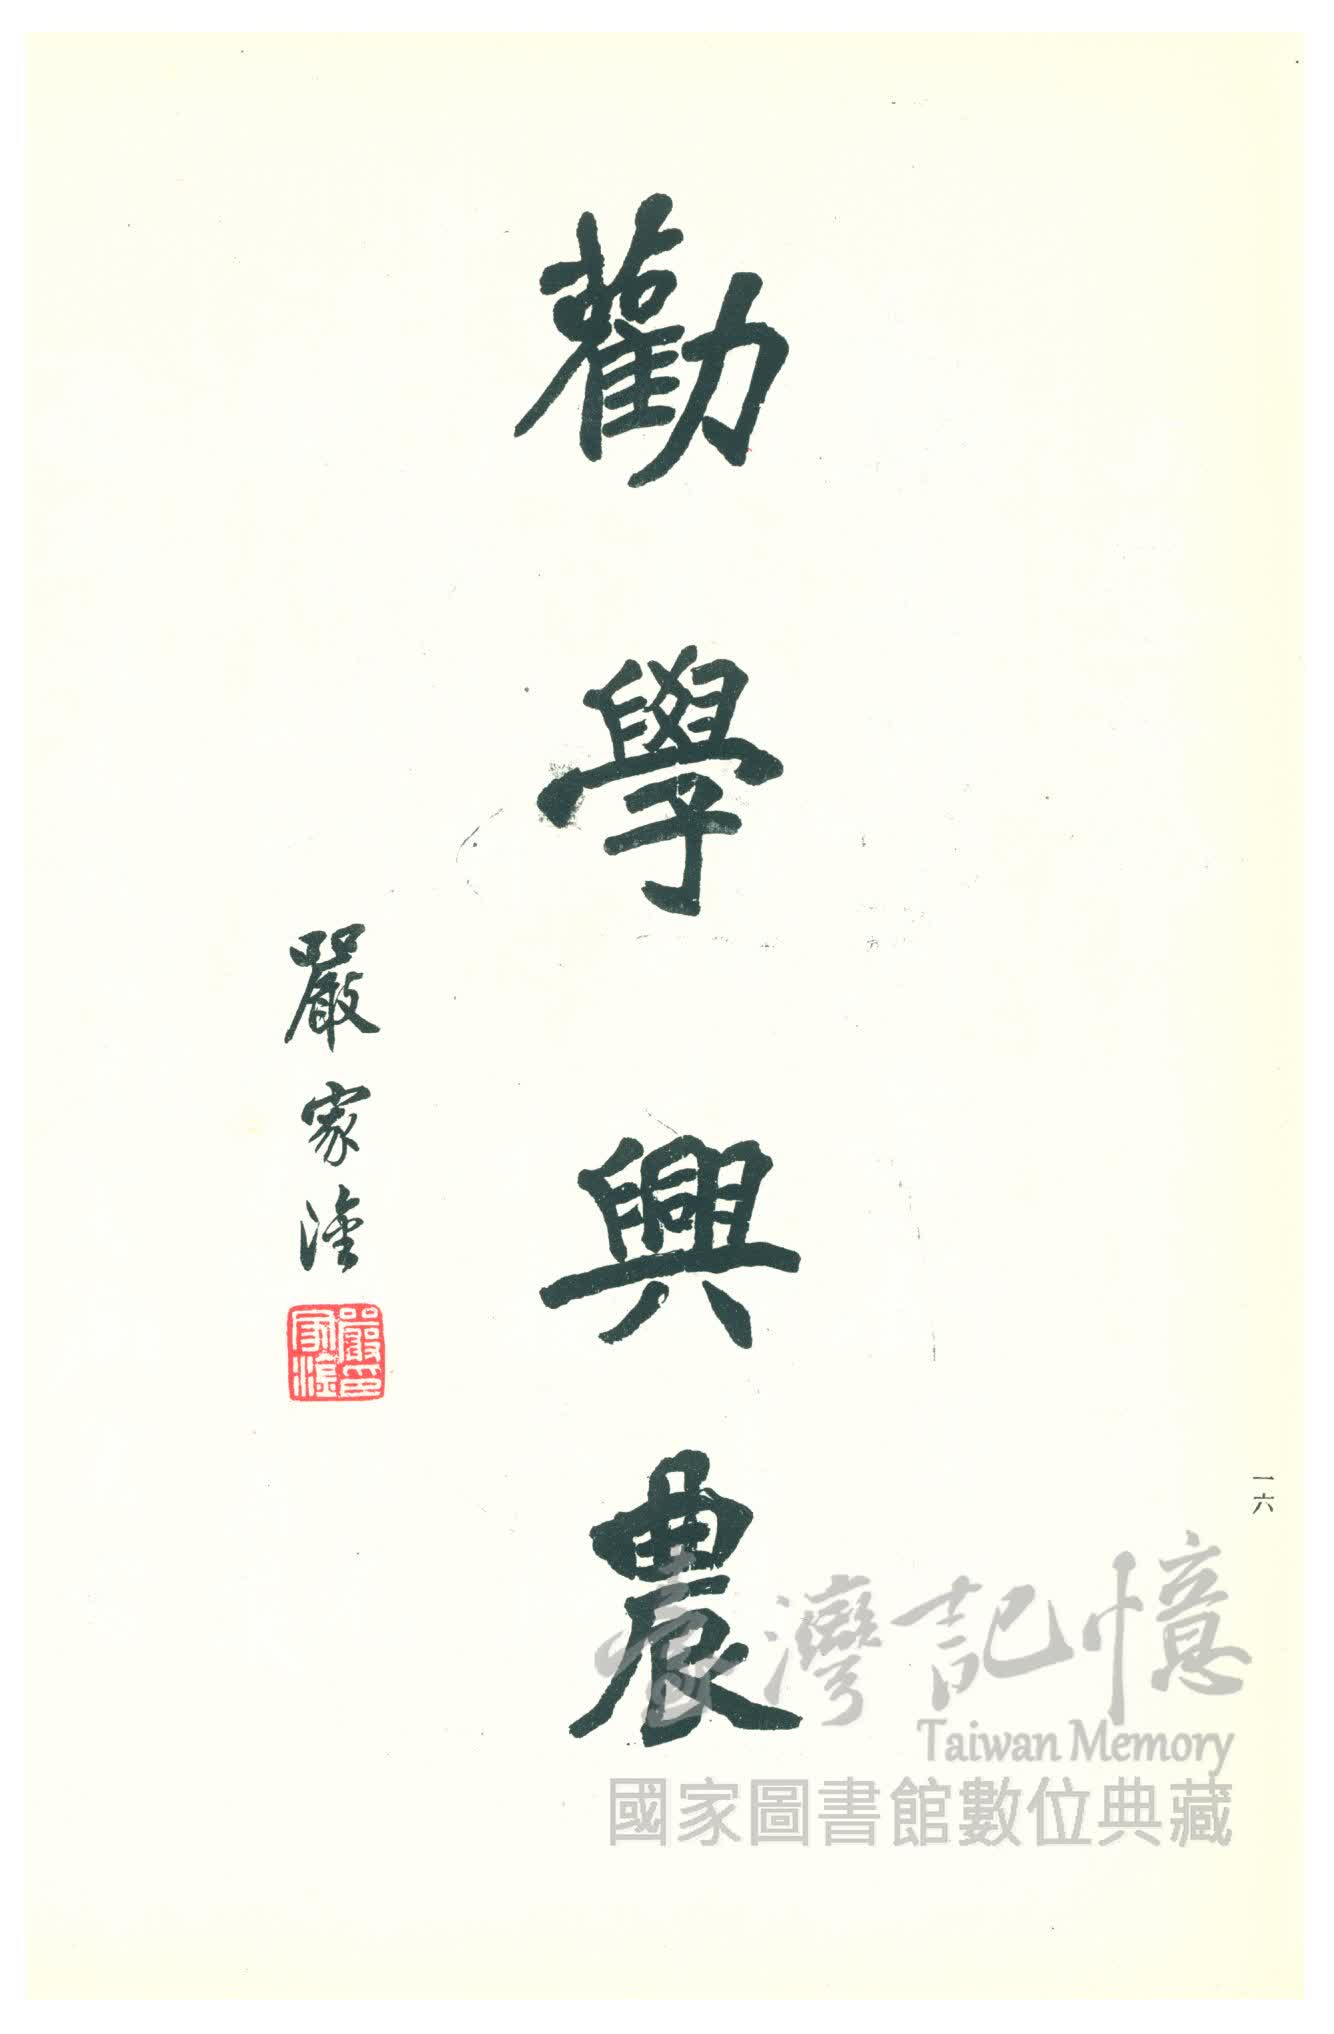 勸學興農
嚴家淦
嚴家淦印
一六
臺灣記憶
Taiwan Memory
國家圖書館數位典藏